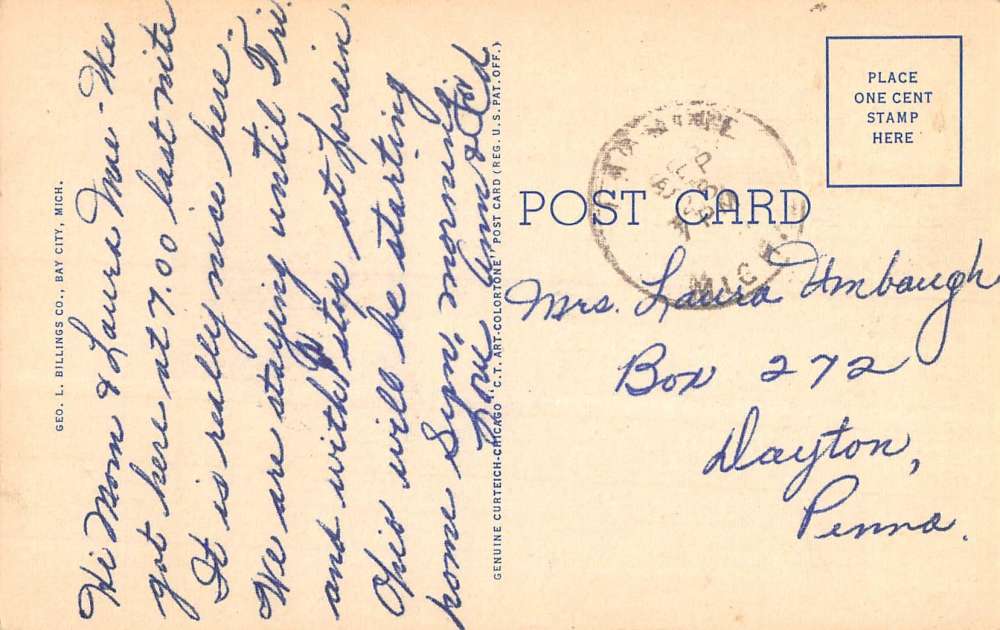 Hi Mom & Laura Mae - We
got here at 7.00 last nite
It is really nice here.
We are staying until Fri.
and with stop at Lorain.
Ohio will be starting
home Sun. morning
Love Ann & Ed
GEO. L. BILLINGS CO., BAY CITY, MICH.
GENUINE CURTEICH-CHICAGO "C.T. ART-COLORTONE" POST CARD (REG. U.S. PAT. OFF.)
PLACE
ONE CENT
STAMP
HERE
POST CARD
MICH.
Mrs. Laura Umbaugh
Box 272
Dayton,
Penna.